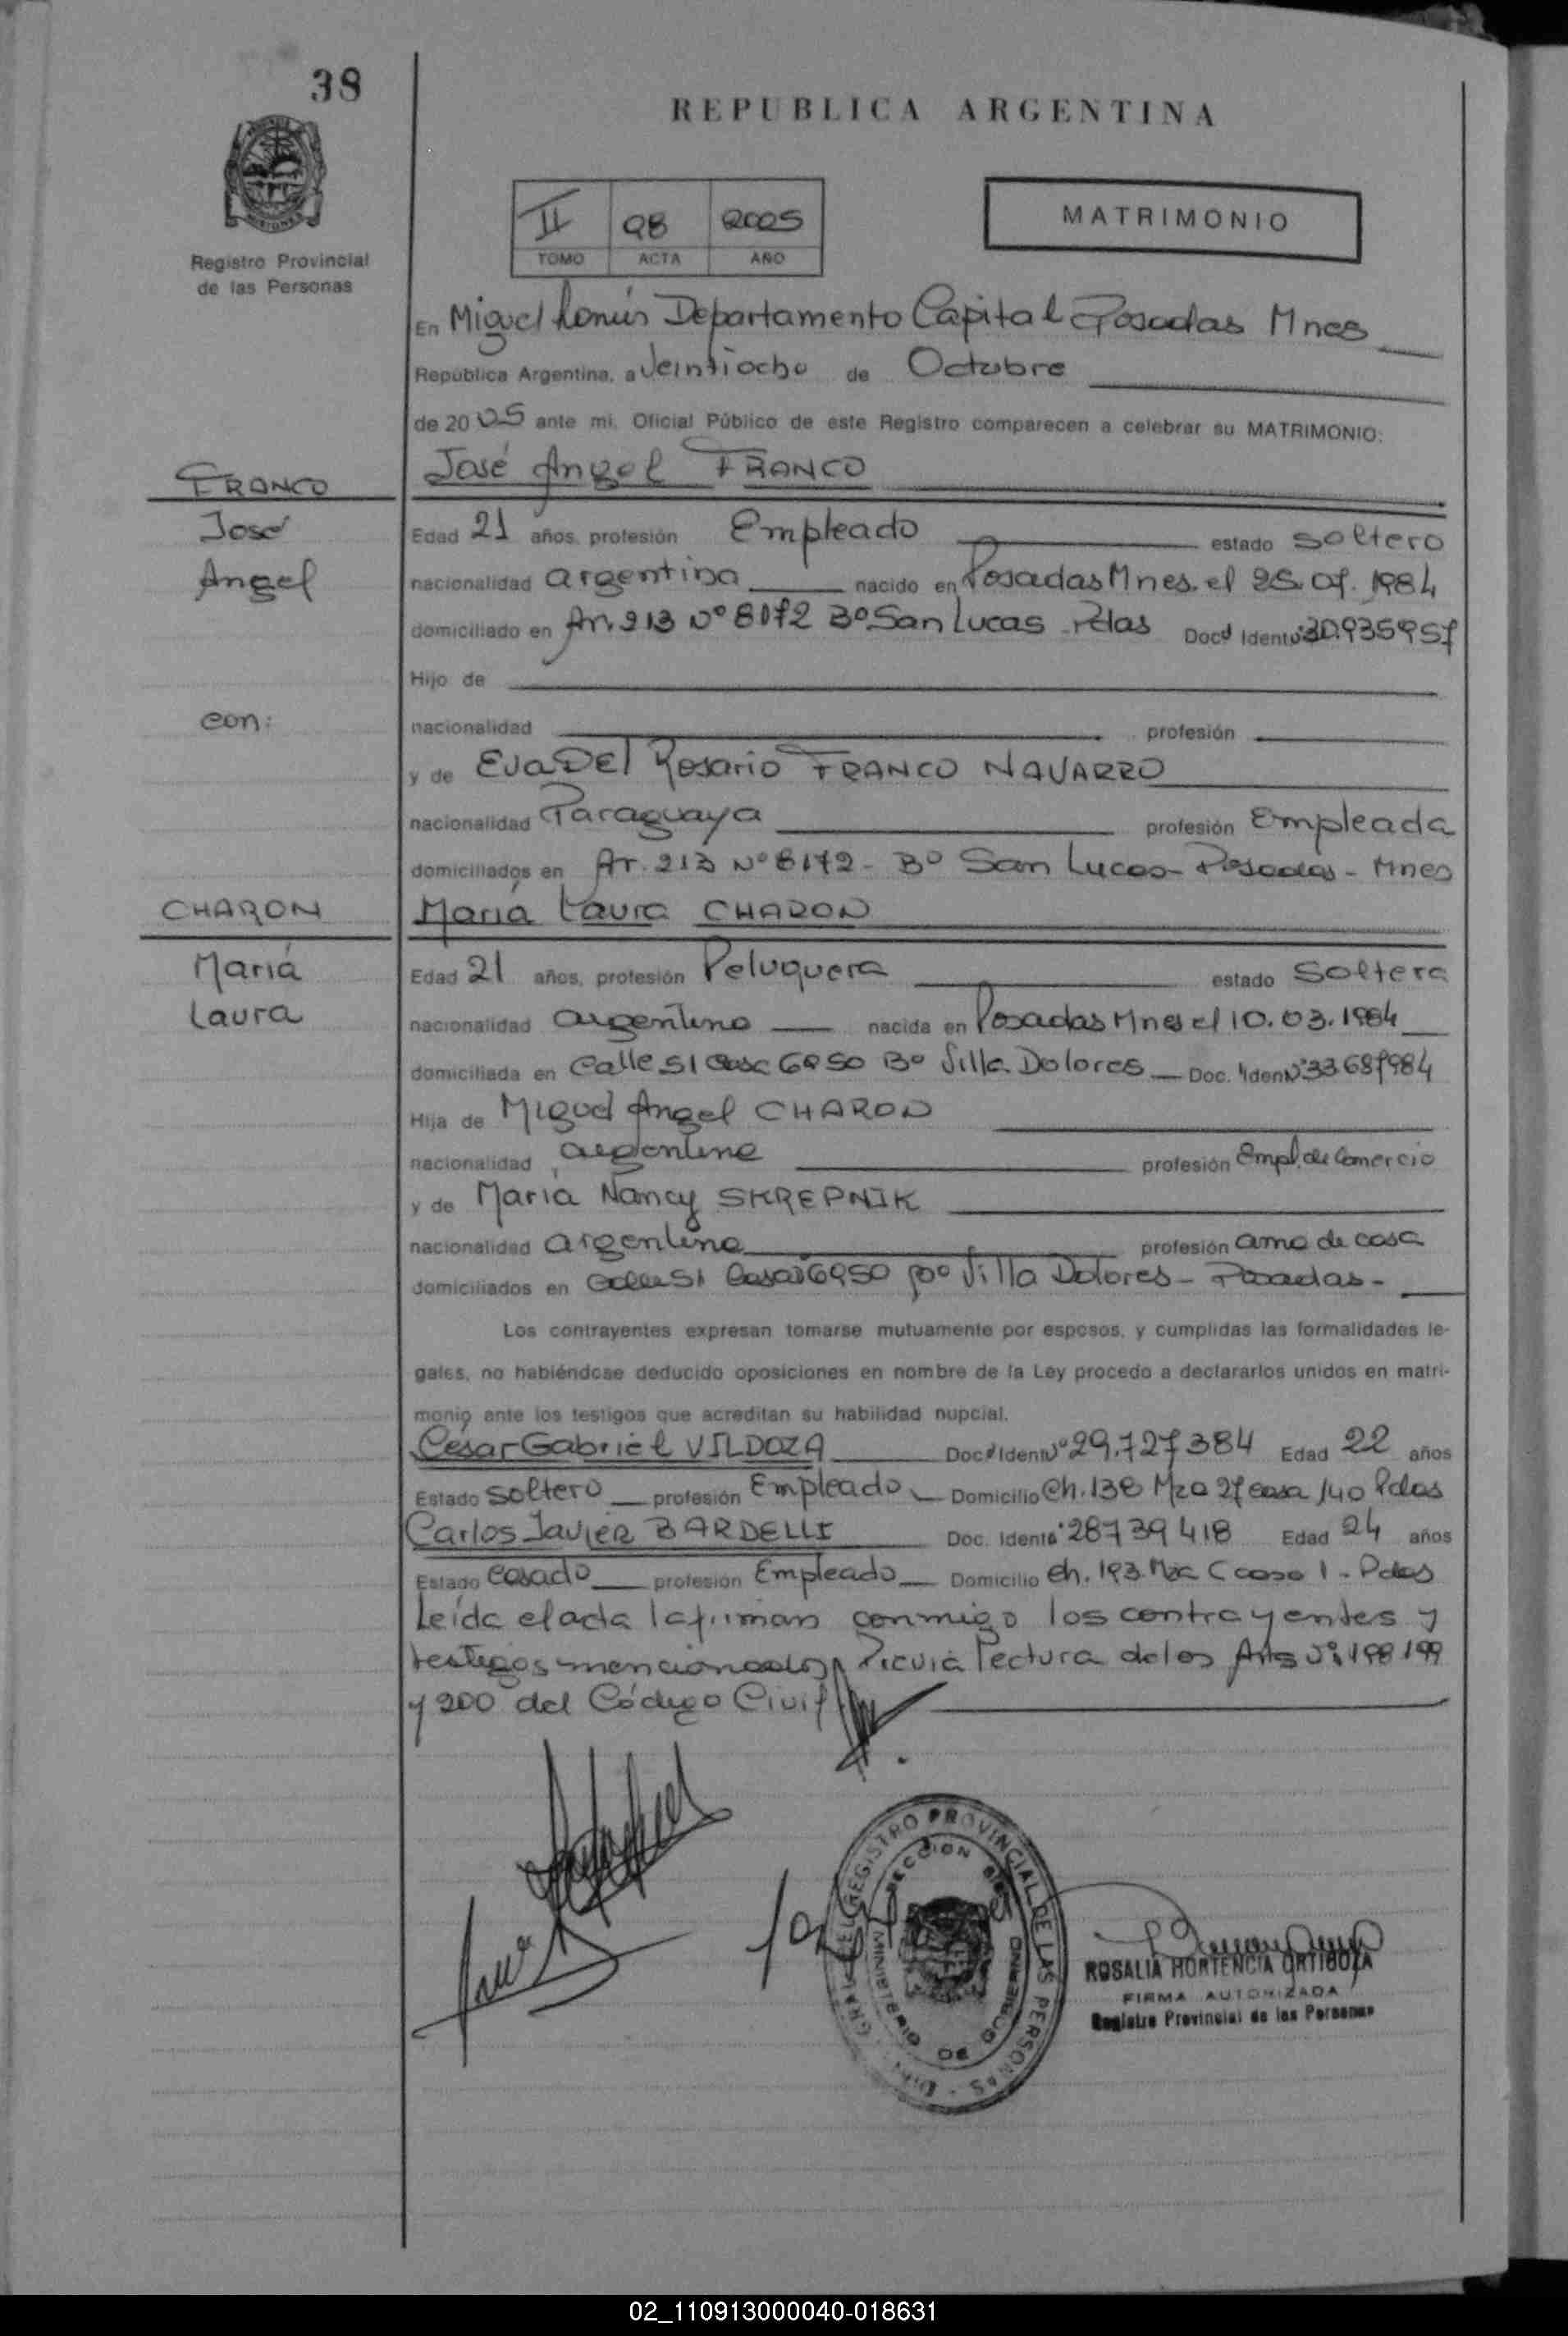 38
REPUBLICA ARGENTINA
II 98 2005
TOMO ACTA AÑO
MATRIMONIO
Registro Provincial
de las Personas
En Miguel Lanús Departamento Capital Posadas Mnes
República Argentina, a Veintiocho de Octubre
de 2005 ante mi, Oficial Público de este Registro comparecen a celebrar su MATRIMONIO:
FRANCO
José
Angel
con:
José Angel FRANCO
Edad 21 años, profesión Empleado estado Soltero
nacionalidad argentina nacido en Posadas Mnes. el 25.07.1984
domiciliado en Av. 213 Nº 8172 Bº San Lucas Pdas Doc. Ident. Nº 30.935957
Hijo de
nacionalidad profesión
y de Eva Del Rosario FRANCO NAVARRO
nacionalidad Paraguaya profesión Empleada
domiciliados en Av. 213 Nº 8172 - Bº San Lucas - Posadas - Mnes
CHARON
María
Laura
María Laura CHARON
Edad 21 años, profesión Peluquera estado Soltera
nacionalidad argentina nacida en Posadas Mnes el 10.03.1984
domiciliada en Calle 51 Casa 6950 Bº Villa Dolores Doc. Iden Nº 33687984
Hija de Miguel Angel CHARON
nacionalidad argentina profesión Empl. de Comercio
y de María Nancy SKREPNIK
nacionalidad argentina profesión ama de casa
domiciliados en Calle 51 Casa 6950 Bº Villa Dolores - Posadas -
Los contrayentes expresan tomarse mutuamente por esposos, y cumplidas las formalidades le-
gales, no habiéndose deducido oposiciones en nombre de la Ley procedo a declararlos unidos en matri-
monio ante los testigos que acreditan su habilidad nupcial.
César Gabriel VILDOZA Doc. Iden Nº 29.727384 Edad 22 años
Estado Soltero profesión Empleado Domicilio Ch. 138 Mza 27 casa 140 Pdas
Carlos Javier BARDELLI Doc. Ident. 28739418 Edad 24 años
Estado Casado profesión Empleado Domicilio Ch. 193 Mza C casa 1 - Pdas
Leída el acta la firman conmigo los contrayentes y
testigos mencionados, Previa Lectura de los Arts Nº 198 199
y 200 del Código Civil
REGISTRO PROVINCIAL DE LAS PERSONAS
MINISTERIO DE GOBIERNO
ROSALIA HORTENCIA ORTIGOZA
FIRMA AUTORIZADA
Registro Provincial de las Personas
02_110913000040-018631